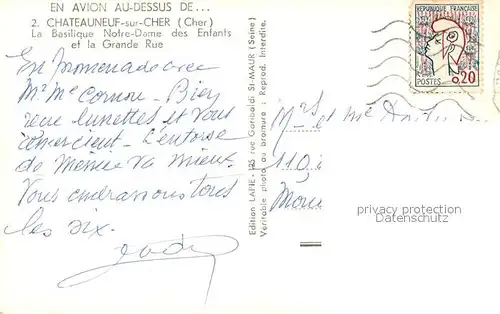 EN AVION AU-DESSUS DE...
2. CHATEAUNEUF-sur-CHER (Cher)
La Basilique Notre-Dame des Enfants
et la Grande Rue
En promenade avec
Mr Me Cornou. Bien
reçu lunettes et vous
remercient. L'entorse
de Mémée va mieux.
Vous embrassons tous
les six.
Edition LAPIE - 125 rue Garibaldi St-MAUR (Seine)
Véritable photo au bromure : Reprod. Interdite.
REPUBLIQUE FRANÇAISE
POSTES
0,20
Mr et Me
110
privacy protection
Datenschutz